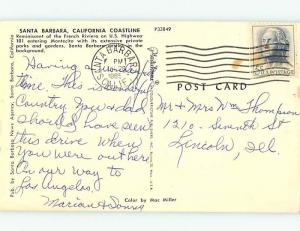 SANTA BARBARA, CALIFORNIA COASTLINE
Reminiscent of the French Riviera on U.S. Highway
101 entering Montecito with its extensive private
parks and gardens. Santa Barbara in the
background.
P33849
SANTA BARBARA
PM
1965
Having a wonderful
time. This is
Country Mom & dad
should have seen
this drive when
you were out here
On our way to
Los Angeles.
Marian & Danny
POST CARD
Mr & Mrs Wm Thompson
1210 Seventh St
Lincoln, Ill.
Color by Mac Miller
Pub. by Santa Barbara News Agency, Santa Barbara, California